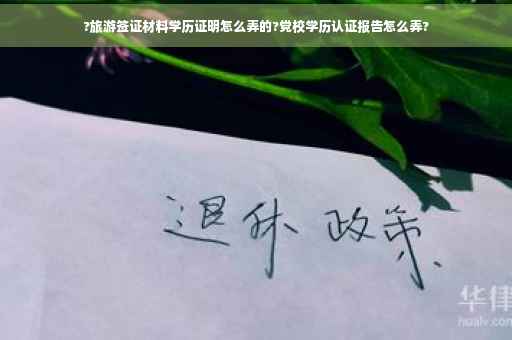 ?旅游签证材料学历证明怎么弄的?党校学历认证报告怎么弄?
退休 政策
华律
hualv.com